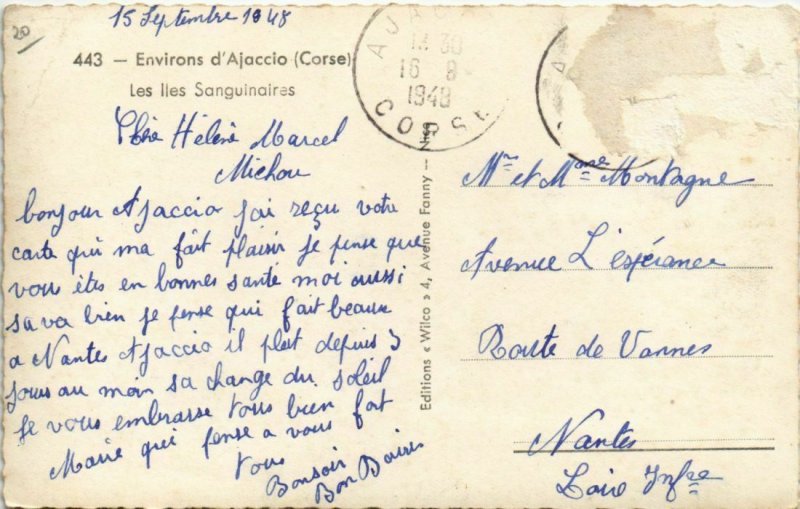 20
15 Septembre 1948
443 — Environs d'Ajaccio (Corse)
Les Iles Sanguinaires
AJACC
14 30
16 9
1948
CORSE
Hélène Marcel
Michou
bonjour Ajaccio jai reçu votre
carte qui ma fait plaisir je pense que
vous êtes en bonnes santé moi aussi
sa va bien je pense qui fait beaux
a Nantes Ajaccio il pleut depuis 3
jours au moin sa change du soleil
je vous embrasse tous bien fort
Marie qui pense a vous
tous
Bonsoir
Bon Baisers
Editions « Wilco » 4, Avenue Fanny — Nice
Mr et Mme Montagne
Avenue L'espérance
Route de Vannes
Nantes
Loire Infre